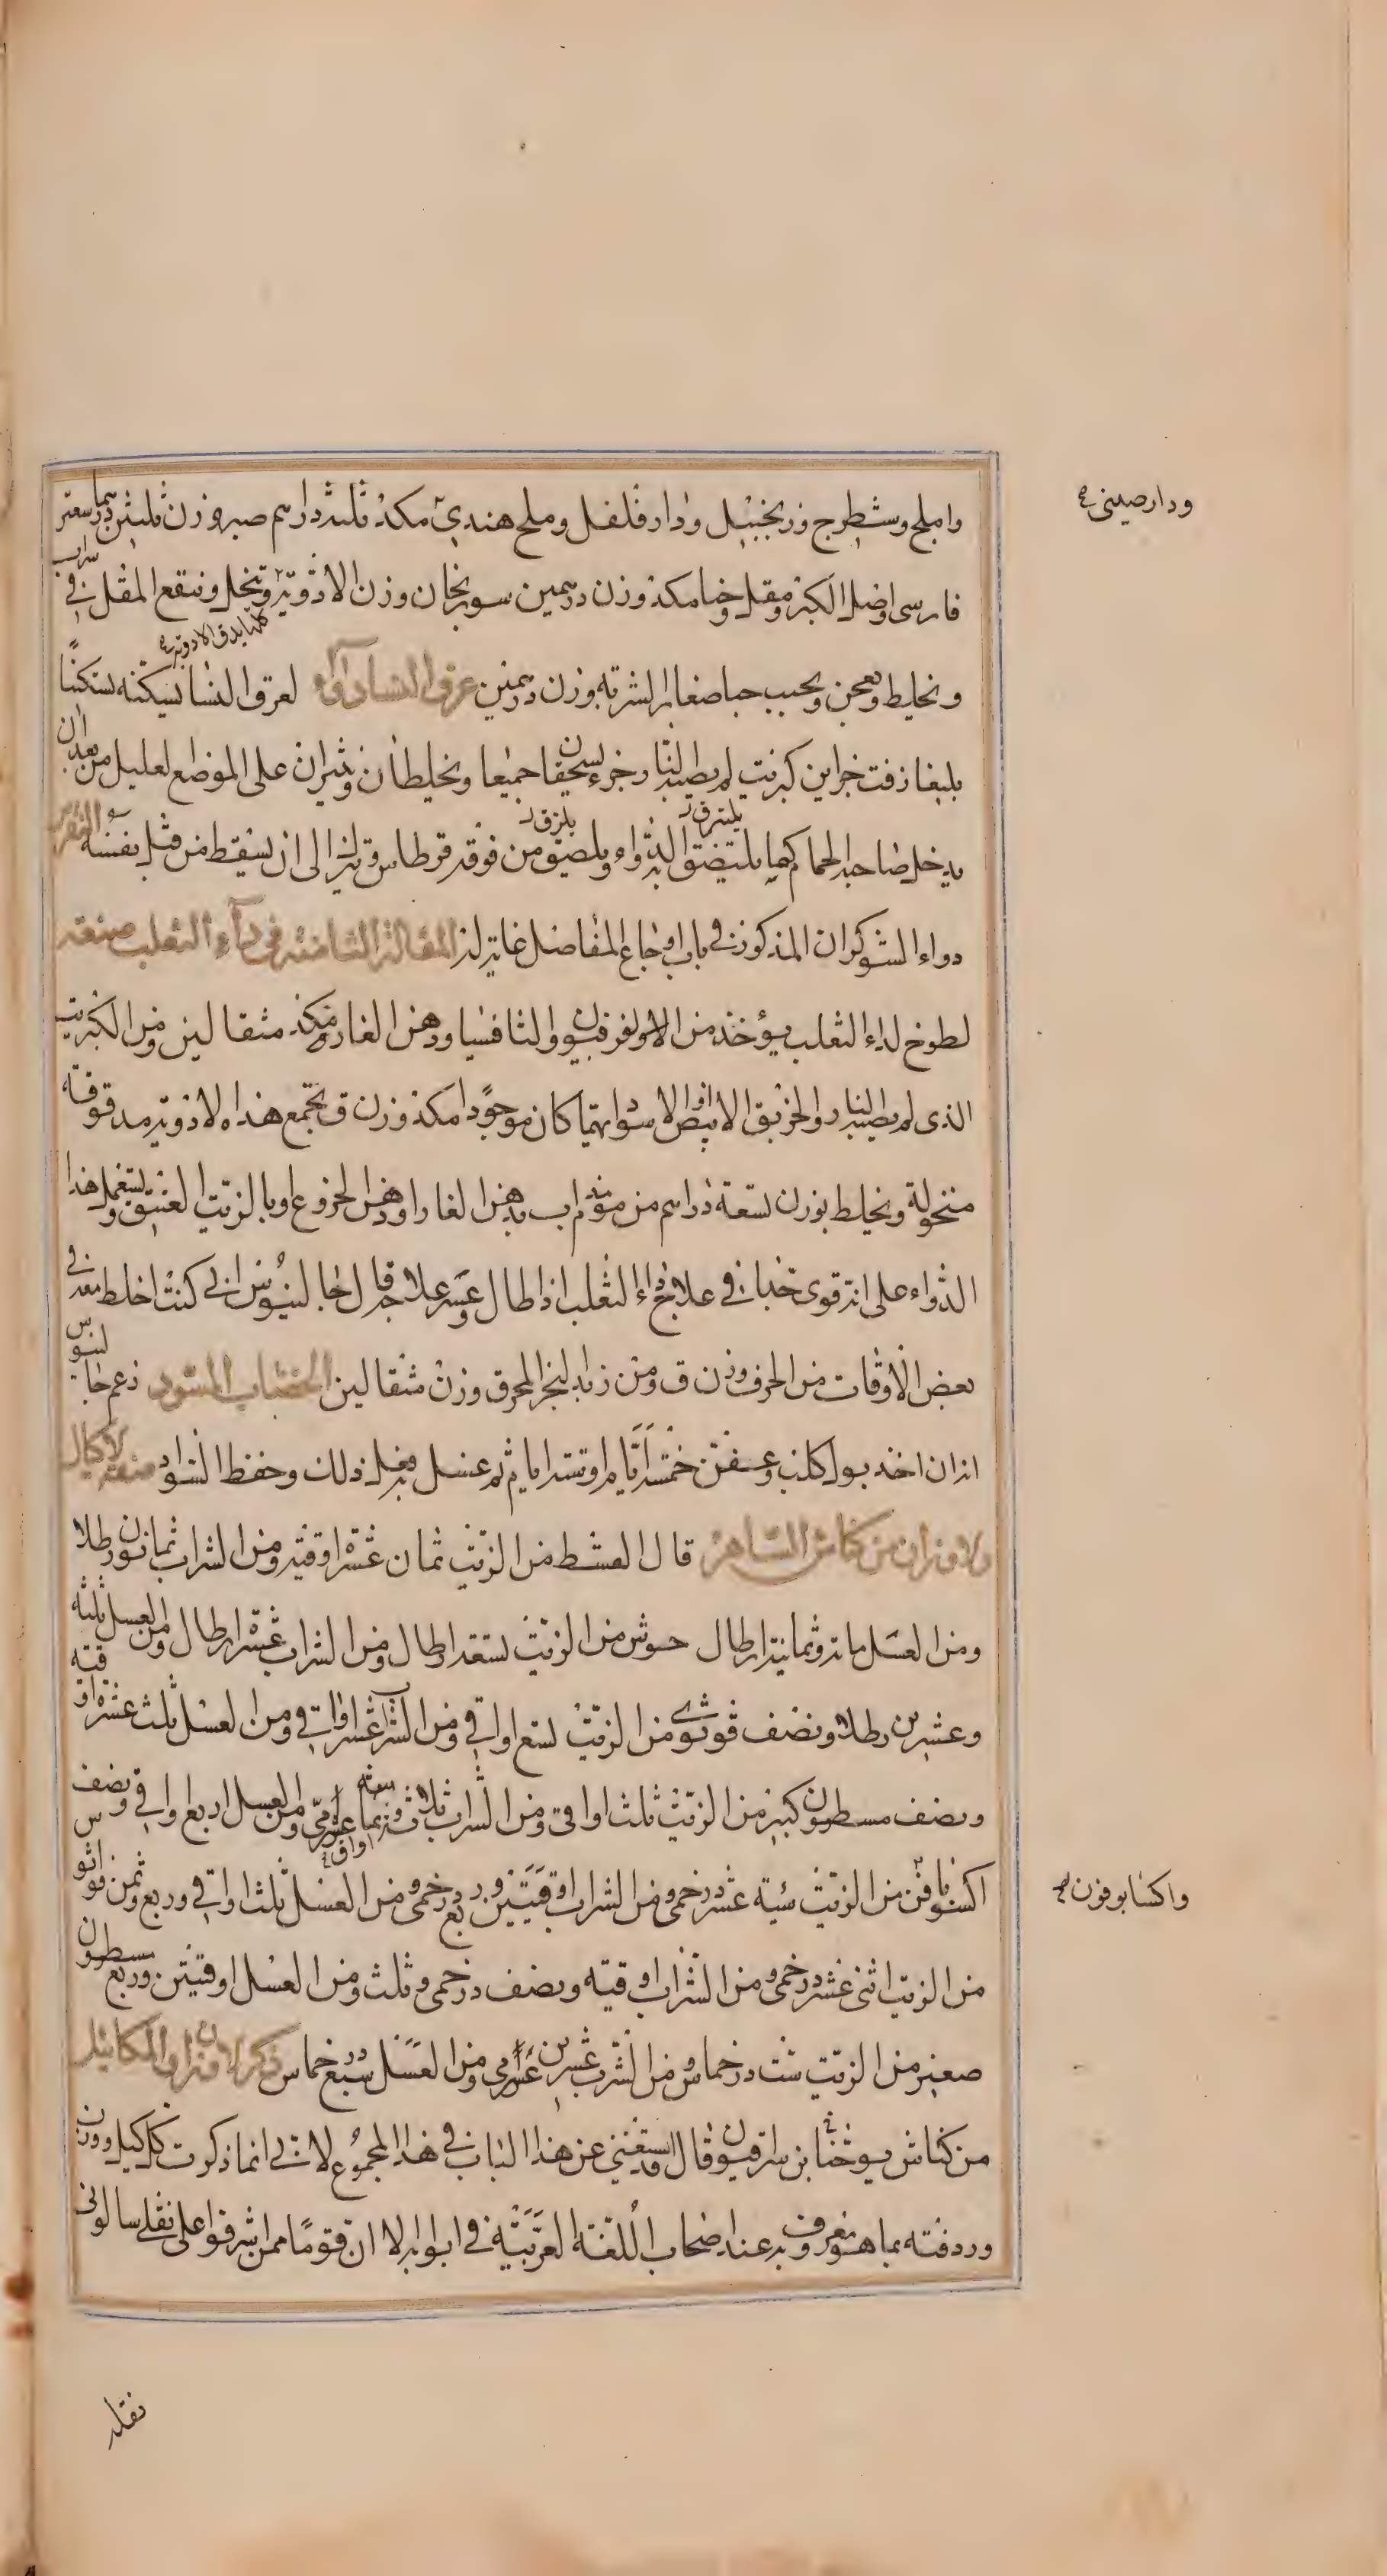 واملج وشيطرج وزنجبيل ودارفلفل وملح هندي مكد ثلثة دراهم صبر وزن ثلثين درهما سعتر
ودارصيني
فارسي اوصل الكبر ومقل وحنا مكد وزن درهمين سورنجان وزن الادوية وتنخل وينقع المقل في شراب
كلها يدق الادوية
ونخلط ونعجن ويحبب حبا صغارا الشربة وزن درهمين عرق النسا دواء لعرق النسا يسكنه تسكينًا
بليغا زفت جزاين كبريت لم يصبه النار جزء يسحقان جميعا ويخلطان وينثران على الموضع العليل من بعد ان
يدخل صاحبه الحمام كيما يلتصق الدواء ويلصق من فوقه قرطاس ويترك الى ان يسقط من قبل نفسه النقرس
يلتزق يلزق
دواء الشوكران المذكور في باب اوجاع المفاصل غاية له المقالة الثامنة في داء الثعلب صنعة
لطوخ لداء الثعلب يؤخذ من الاوفرفيون والثافسيا ودهن الغار مكد مثقالين ومن الكبريت
الذي لم يصبه النار والخربق الابيض او الاسود ايهما كان موجودا مكد وزن ق تجمع هذه الادوية مدقوقة
منخولة ويخلط بوزن تسعة دراهم من موم مذاب بدهن الغار او دهن الخروع او بالزيت العتيق ويستعمل هذا
الدواء على انه قوي جدا في علاج داء الثعلب اذا طال وعسر علاجه قال جالينوس اني كنت اخلط معه في
بعض الاوقات من الحرف وزن ق ومن زبد البحر المحرق وزن مثقالين الخضاب المسود زعم جالينوس
انه ان اخذ بول كلب وعفن خمسة ايام او ستة ايام ثم غسل به فعل ذلك وحفظ السواد صفة الاكيال
والاوزان من كناش الساهر قال القسط من الزيت ثمان عشرة اوقية ومن الشراب ثمانون رطلا
ومن العسل مائة وثمانية ارطال حوش من الزيت تسعة ارطال ومن الشراب عشرة ارطال ومن العسل ثلثة
وعشرين رطلا ونصف قوثوي من الزيت تسع اواقي ومن الشراب عشر اواقي ومن العسل ثلث عشرة اوقية
ونصف مسطرون كبير من الزيت ثلث اواقي ومن الشراب ثلاث اواق ومن العسل اربع اواقي ونصف
اكسوبافن من الزيت ستة عشر درخمي ومن الشراب اوقيتين وربع درخمي ومن العسل ثلث اواقي وربع وثمن قواثوس
واكسابوفون
من الزيت اثني عشر درخمي ومن الشراب اوقية ونصف درخمي وثلث ومن العسل اوقيتين وربع مسطرون
صغير من الزيت ست درخماس ومن الشراب عشرين غرامي ومن العسل سبع درخماس ذكر الاوزان والمكاييل
من كناش يوحنا بن سرافيون قال قد استغني عن هذا الباب في هذا المجموع لاني انما ذكرت كل كيل ووزن
وردفته بما هو معروف به عند اصحاب اللغة العربية في ابوابه الا ان قوما ممن اشرفوا على نقله سالوني
نقله